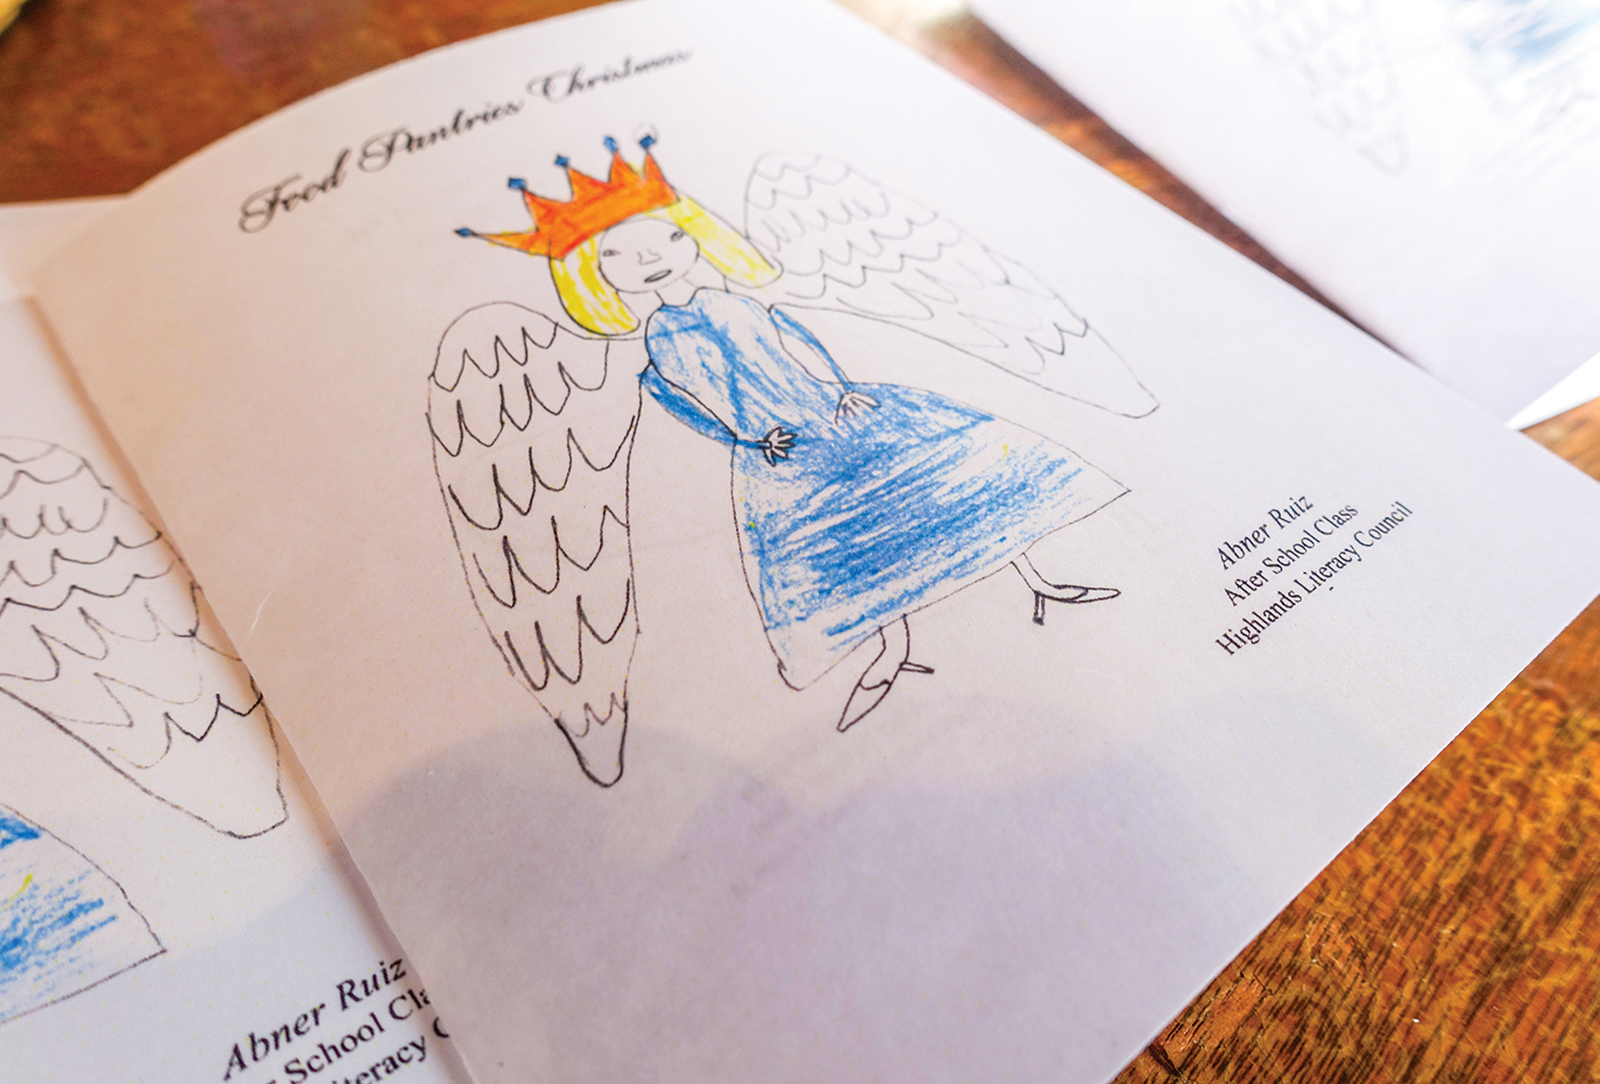 Food Pantries Christmas
Abner Ruiz
After School Class
Highlands Literacy Council
Abner Ruiz
School Cla
iteracy C